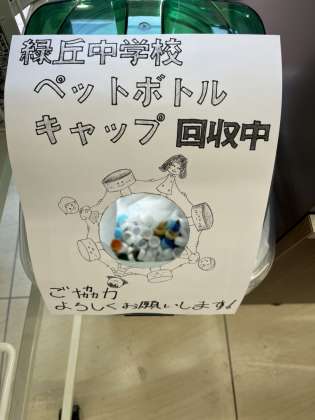 緑丘中学校
ペットボトル
キャップ 回収中
ご協力
よろしくお願いします!